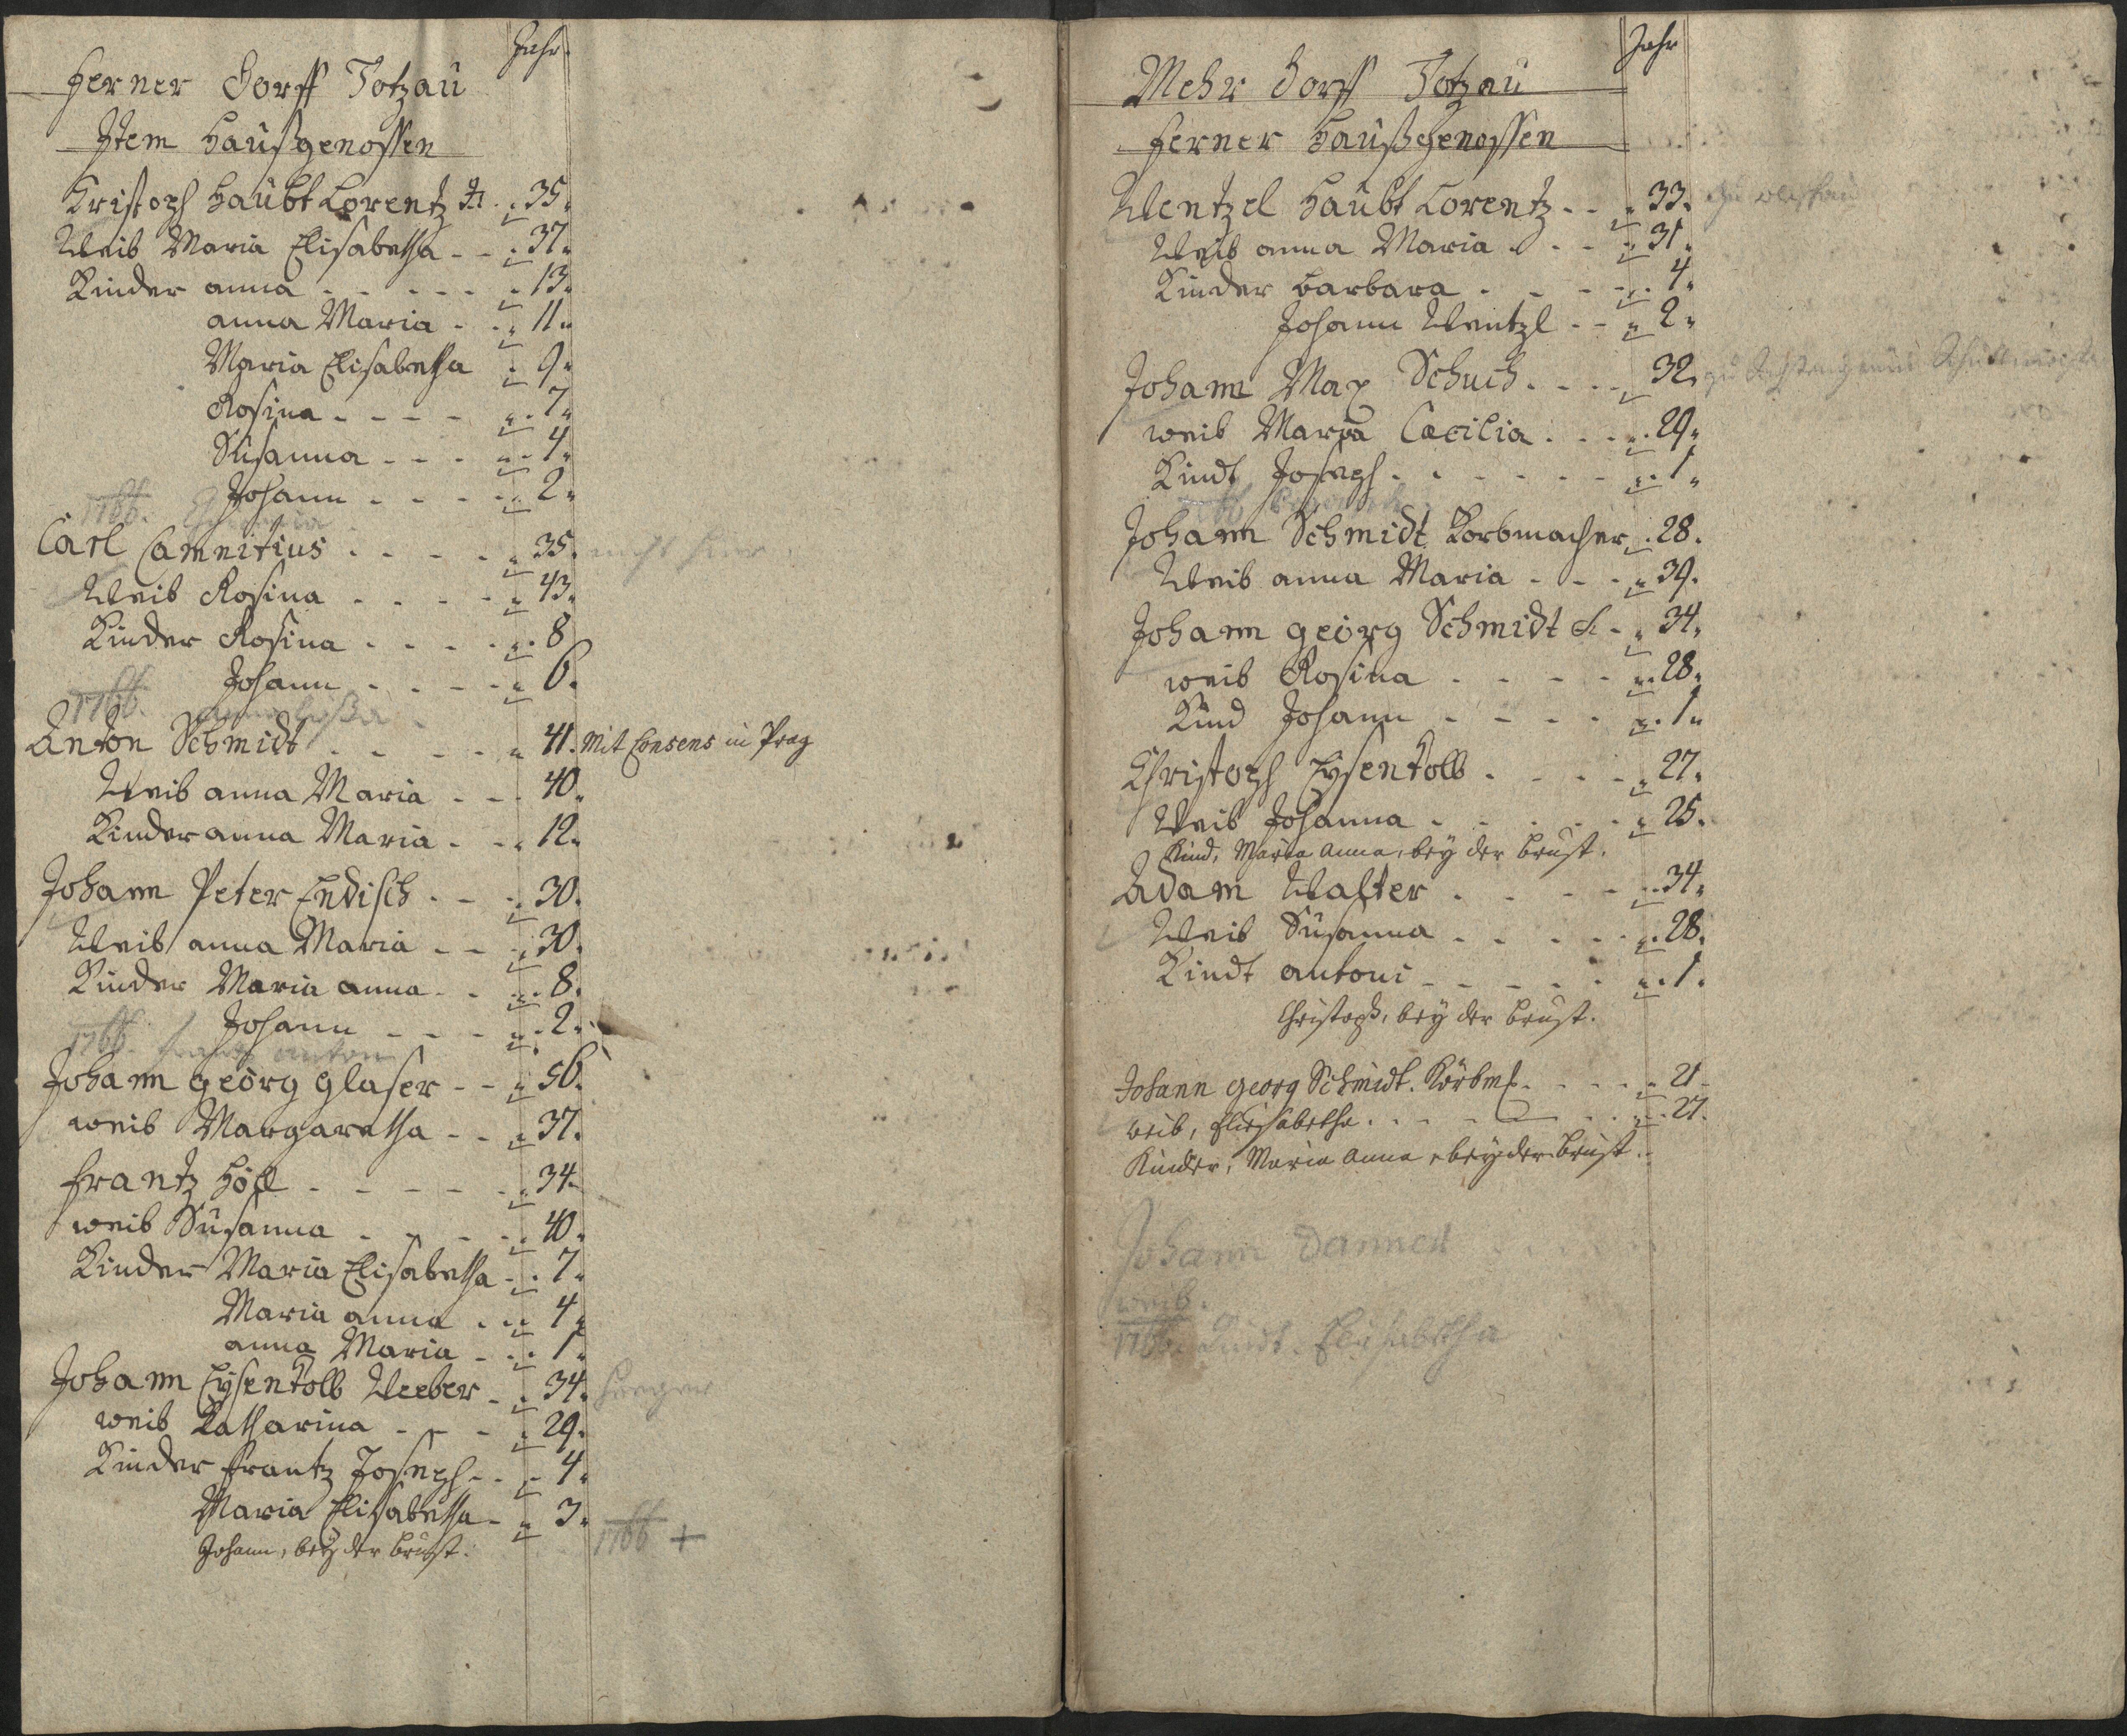 Jahr.
Ferner Dorff Totzau
Item Haußgenossen
Kristoph Haubt Lorentz 35.
Weib Maria Elisabetha - - 37.
Kinder anna - - - - - 13.
anna Maria - - 11.
Maria Elisabetha 9.
Rosina - - - - 7.
Susanna - - - 4.
Johann - - - - 2.
1766.
Carl Camnitius - - - - 35. nicht hier
Weib Rosina - - - - 43.
Kinder Rosina - - - - 8
Johann - - - - 6.
1766.
Anton Schmidt - - - - 41. Mit Consens in Prag
Weib anna Maria - - - 40.
Kinder anna Maria - - 12.
Johann Peter Endisch - - 30.
Weib anna Maria - - 30.
Kinder Maria anna - - 8.
Johann - - - - 2.
1766. Frantz anton
Johann georg glaser - - 56.
weib Margaretha - - 37.
Frantz Höll - - - - - 34.
weib Susanna - - - - 40.
Kinder Maria Elisabetha - 7.
Maria anna - - 4.
anna Maria - - 1.
Johann Eysenkolb Weeber - 34.
weib Katharina - - - 29.
Kinder Frantz Joseph - - 4.
Maria Elisabetha - 3.
Johann, bey der brust.
1766 +
Jahr
Mehr Dorff Totzau
Ferner Haußgenossen
Wentzel Haubt Lorentz - - 33.
Weib anna Maria - - 31.
Kinder barbara - - - - 4.
Johann Wentzl - - 2.
Johann Max Schuch - - - 32.
weib Maria Cæcilia - - - 29.
Kindt Joseph - - - - - - 1.
Johann Schmidt Korbmacher 28.
Weib anna Maria - - - 39.
Johann georg Schmidt - 34.
weib Rosina - - - - 28.
Kind Johann - - - - 1.
Christoph Eysenkolb - - - - 27.
Weib Johanna - - - - - 25.
Kind, Maria Anna, bey der brust.
Adam Walter - - - - 34.
Weib Susanna - - - - 28.
Kindt antoni - - - - - 1.
Christoph, bey der brust.
Johann georg Schmidt. Körbm. - - - - 21
weib, Elisabetha - - - - - - 27.
Kinder, Maria Anna bey der brust.
Johann Danner
weib.
1766. Kindt. Elisabetha